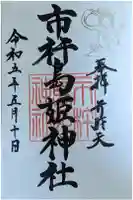 奉拝 弁財天
市杵島姫神社
令和五年五月十日